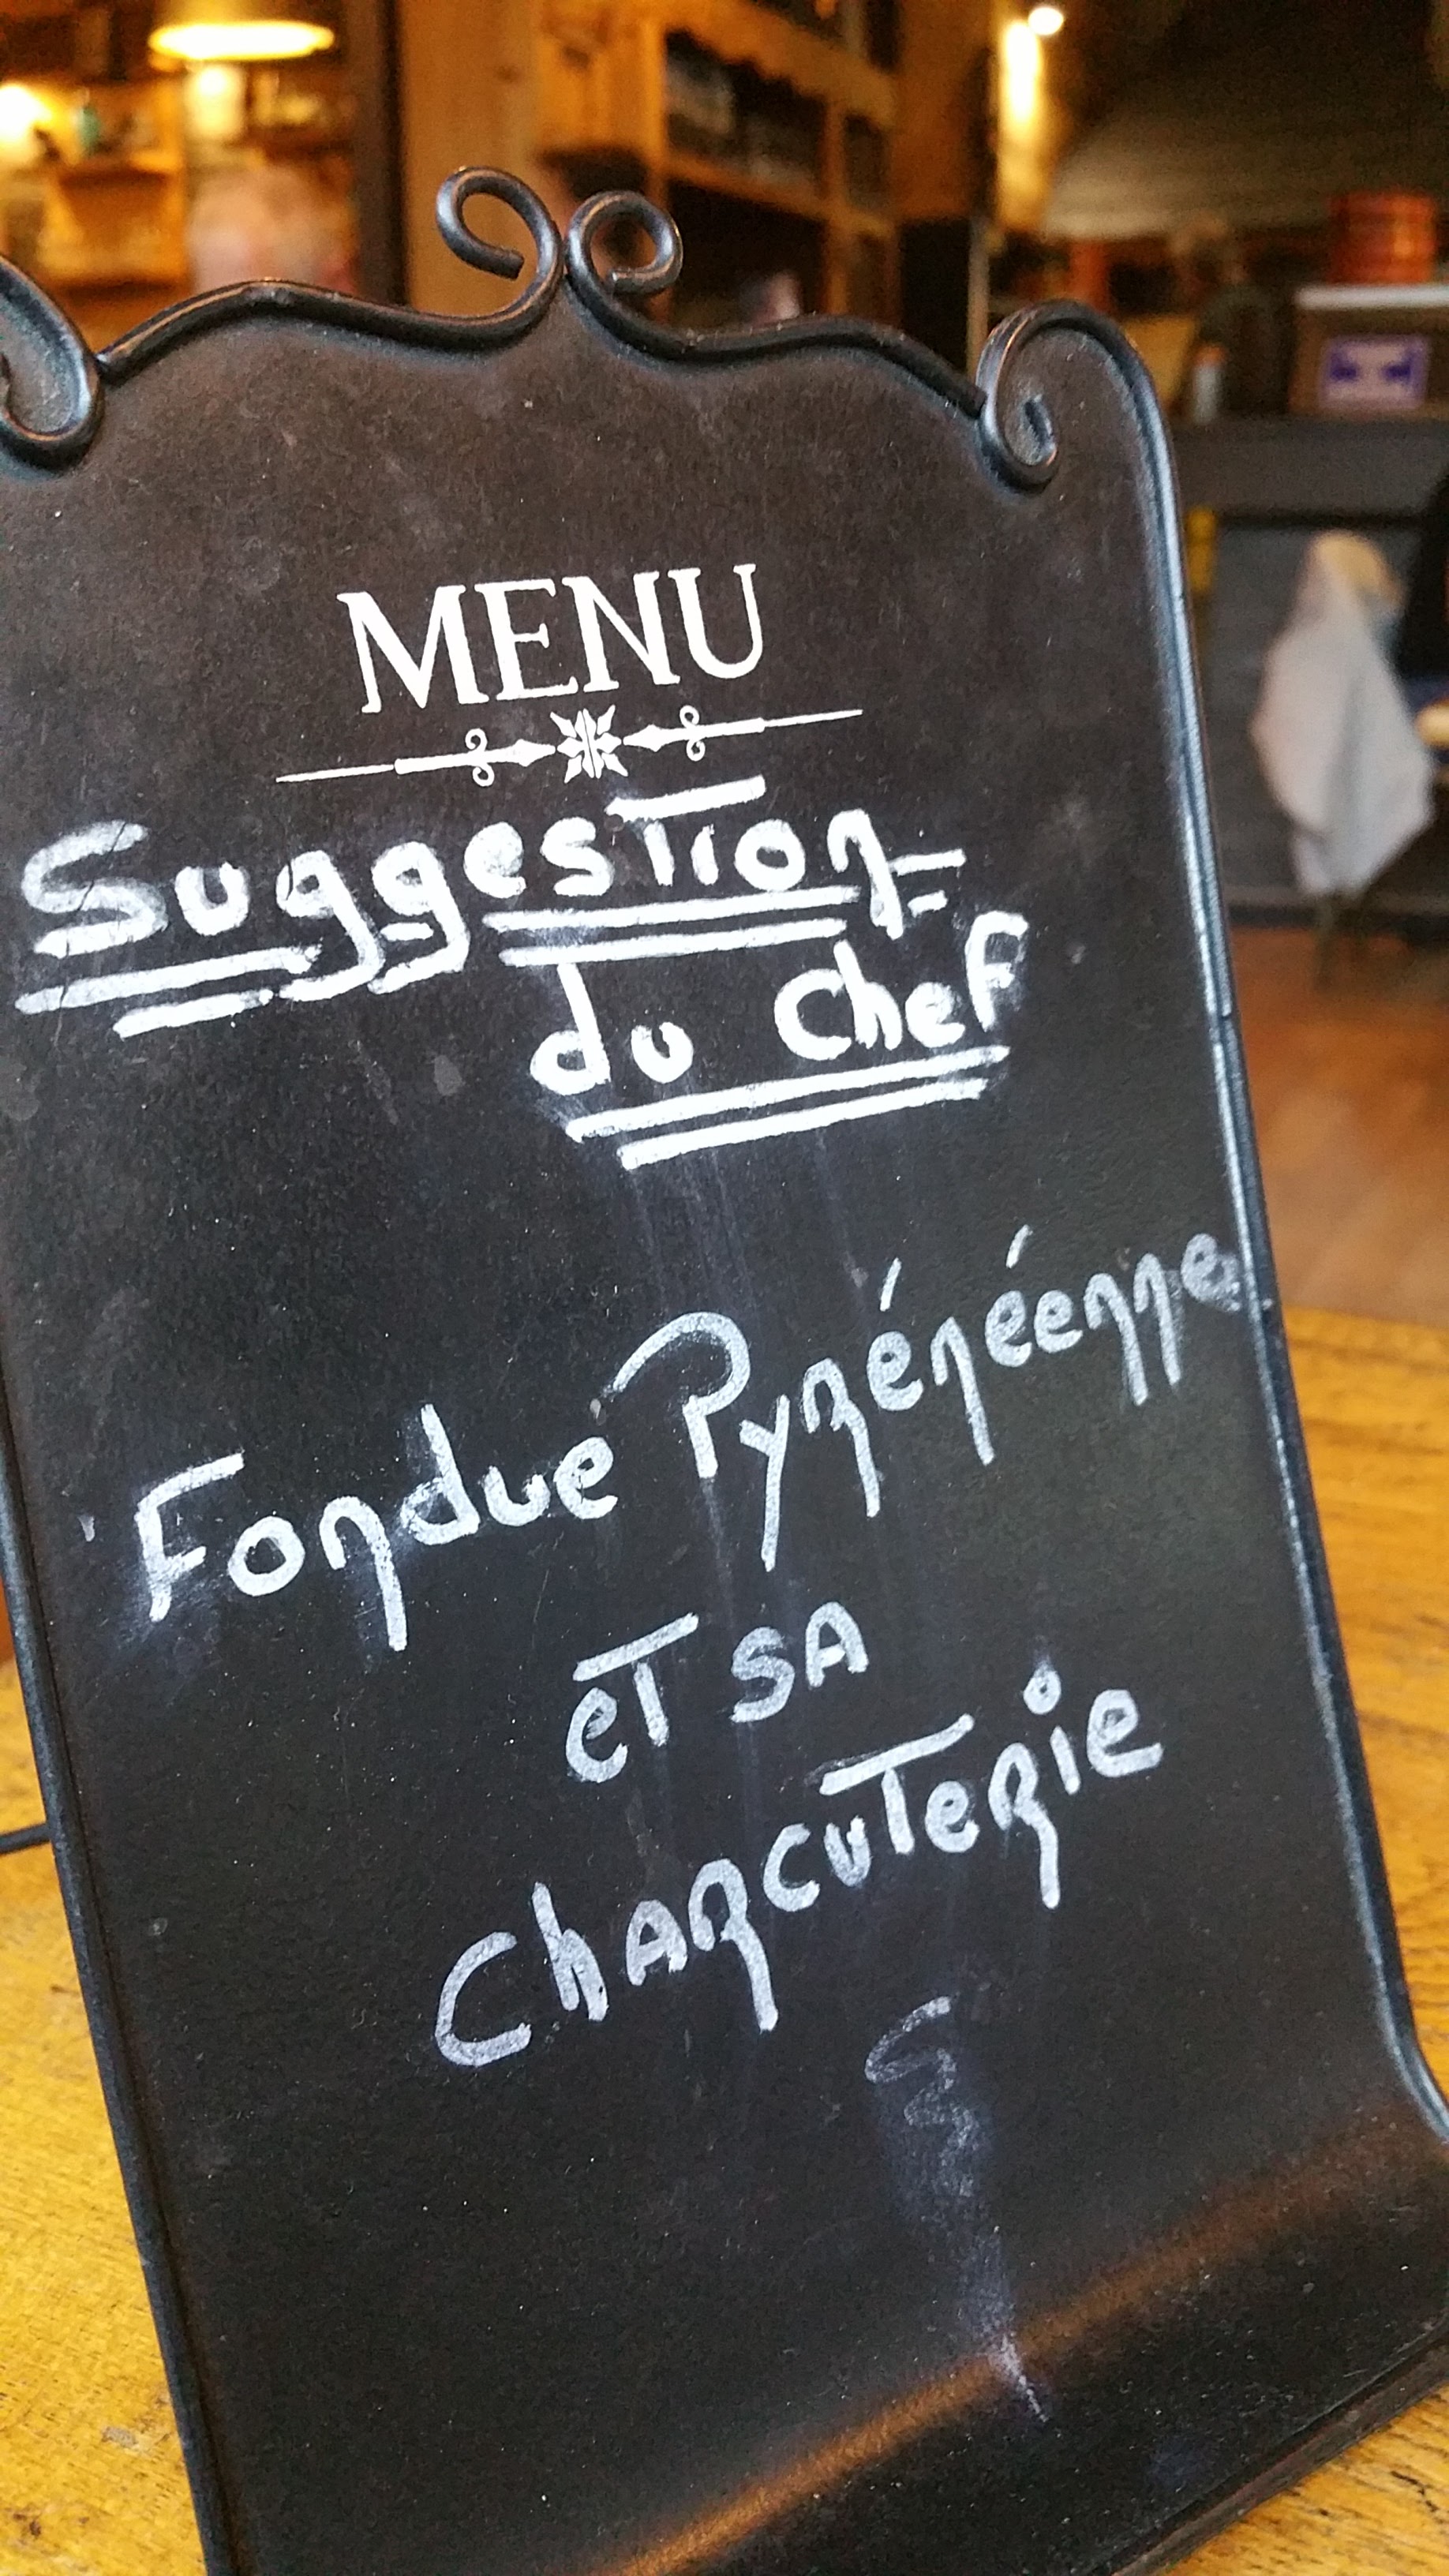 MENU
Suggestion
du Chef
Fondue Pyrénéenne
et sa
Charcuterie